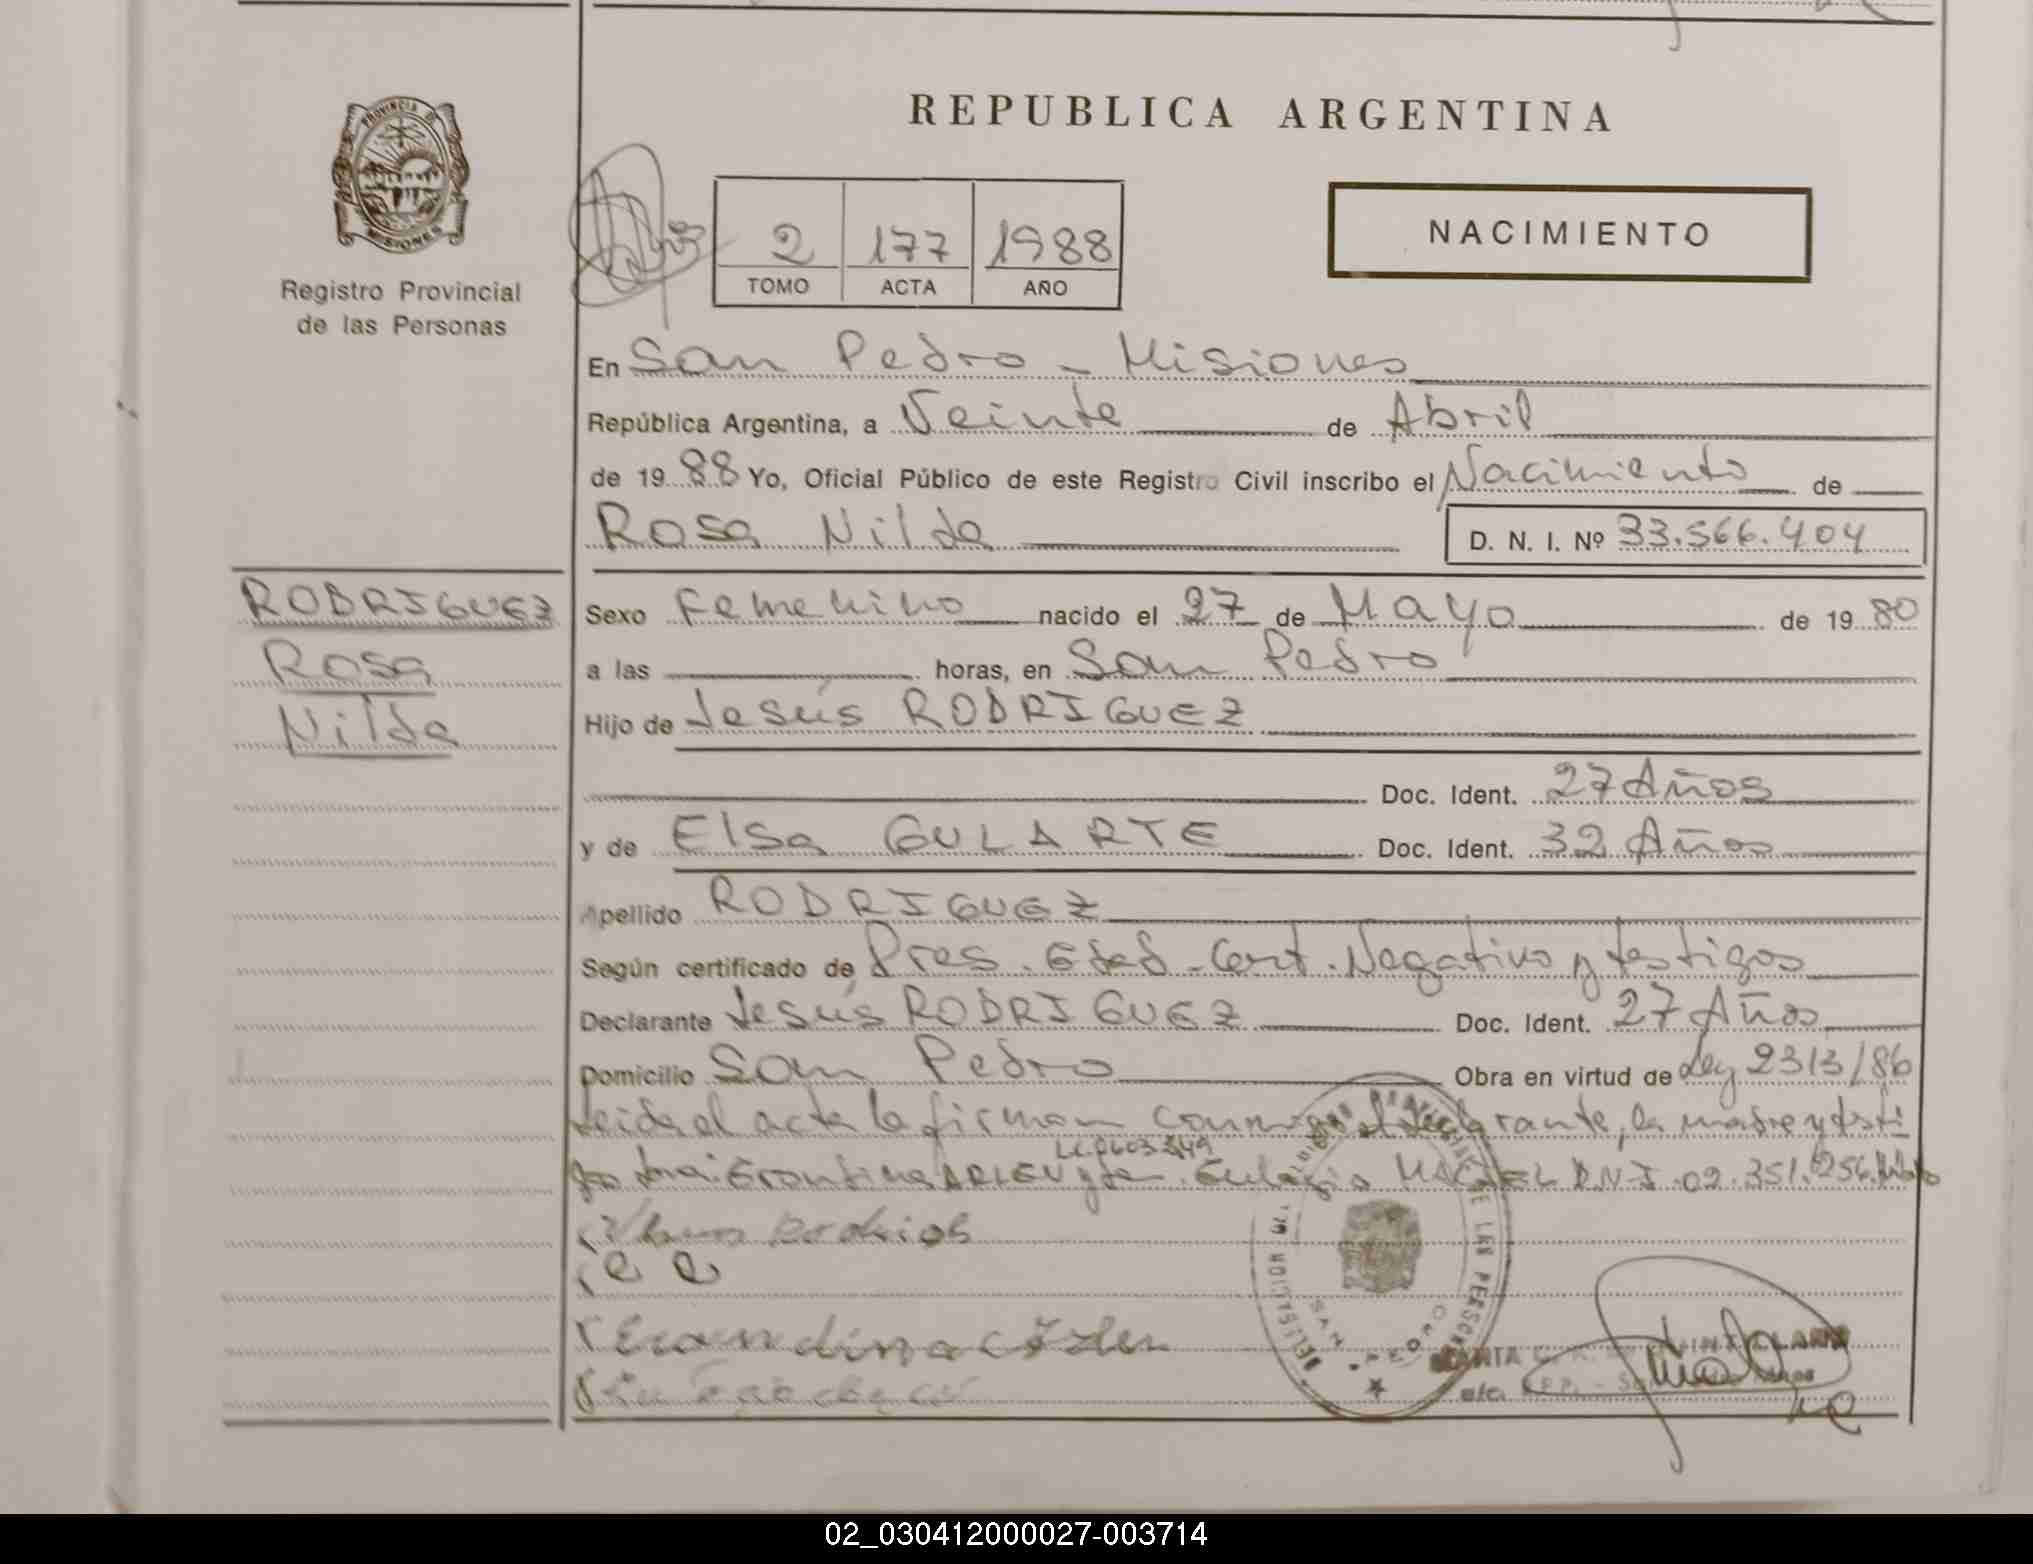 REPUBLICA ARGENTINA
PROVINCIA D
MISIONES
Registro Provincial
de las Personas
2 177 1988
TOMO ACTA AÑO
NACIMIENTO
En San Pedro - Misiones
República Argentina, a Veinte de Abril
de 19 88 Yo, Oficial Público de este Registro Civil inscribo el Nacimiento de
Rosa Nilda
D. N. I. Nº 33.566.404
RODRIGUEZ
Rosa
Nilda
Sexo Femenino nacido el 27 de Mayo de 19 80
a las horas, en San Pedro
Hijo de Jesús RODRIGUEZ
Doc. Ident. 27 Años
y de Elsa GULARTE Doc. Ident. 32 Años
Apellido RODRIGUEZ
Según certificado de Pres. Edad - Cert. Negativo y testigos
Declarante Jesús RODRIGUEZ Doc. Ident. 27 Años
Domicilio San Pedro Obra en virtud de Ley 2313/86
Leida el acta la firman conmigo el declarante, la madre y testi
D.N.I. 02.351.256
SAN PEDRO
02_030412000027-003714